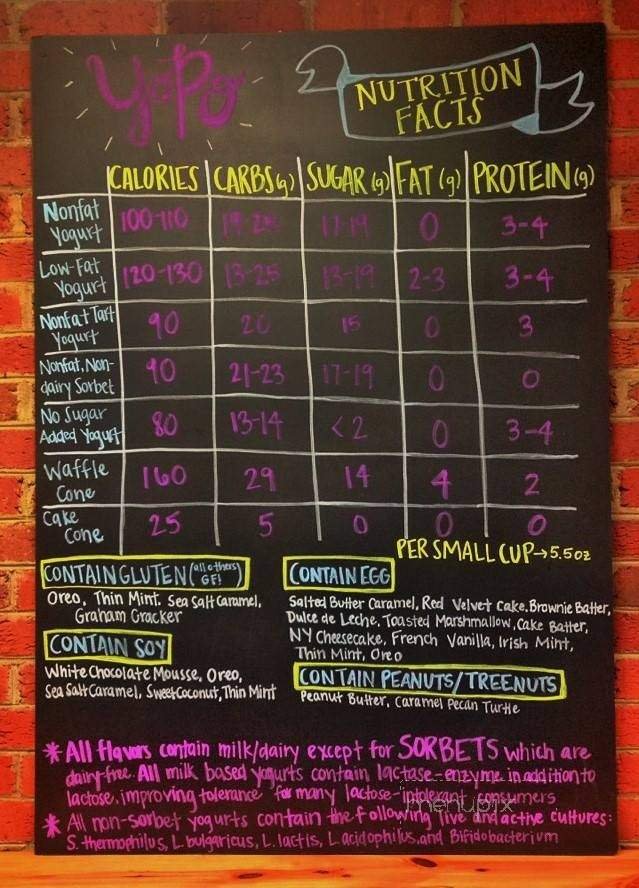 YoPo
NUTRITION
FACTS
CALORIES CARBS(g) SUGAR(g) FAT(g) PROTEIN(g)
Nonfat
Yogurt 100-110 17-19 0 3-4
Low-Fat
Yogurt 120-130 13-25 13-19 2-3 3-4
Nonfat Tart
Yogurt 90 20 15 0 3
Nonfat, Non-
dairy Sorbet 90 21-23 17-19 0 0
No Sugar
Added Yogurt 80 13-14 <2 0 3-4
Waffle
Cone 160 29 14 4 2
Cake
Cone 25 5 0 0 0
PER SMALL CUP→5.5oz
CONTAIN GLUTEN (all others GF!)
Oreo, Thin Mint. Sea Salt Caramel,
Graham Cracker
CONTAIN SOY
White Chocolate Mousse, Oreo,
Sea Salt Caramel, Sweet Coconut, Thin Mint
CONTAIN EGG
Salted Butter Caramel, Red Velvet Cake. Brownie Batter,
Dulce de Leche, Toasted Marshmallow, Cake Batter,
NY Cheesecake, French Vanilla, Irish Mint,
Thin Mint, Oreo
CONTAIN PEANUTS/TREENUTS
Peanut Butter, Caramel Pecan Turtle
* All flavors contain milk/dairy except for SORBETS which are
dairy-free. All milk based yogurts contain lactase enzyme in addition to
lactose, improving tolerance for many lactose-intolerant consumers
* All non-sorbet yogurts contain the following live and active cultures:
S. thermophilus, L. bulgaricus, L. lactis, L. acidophilus, and Bifidobacterium
menupix